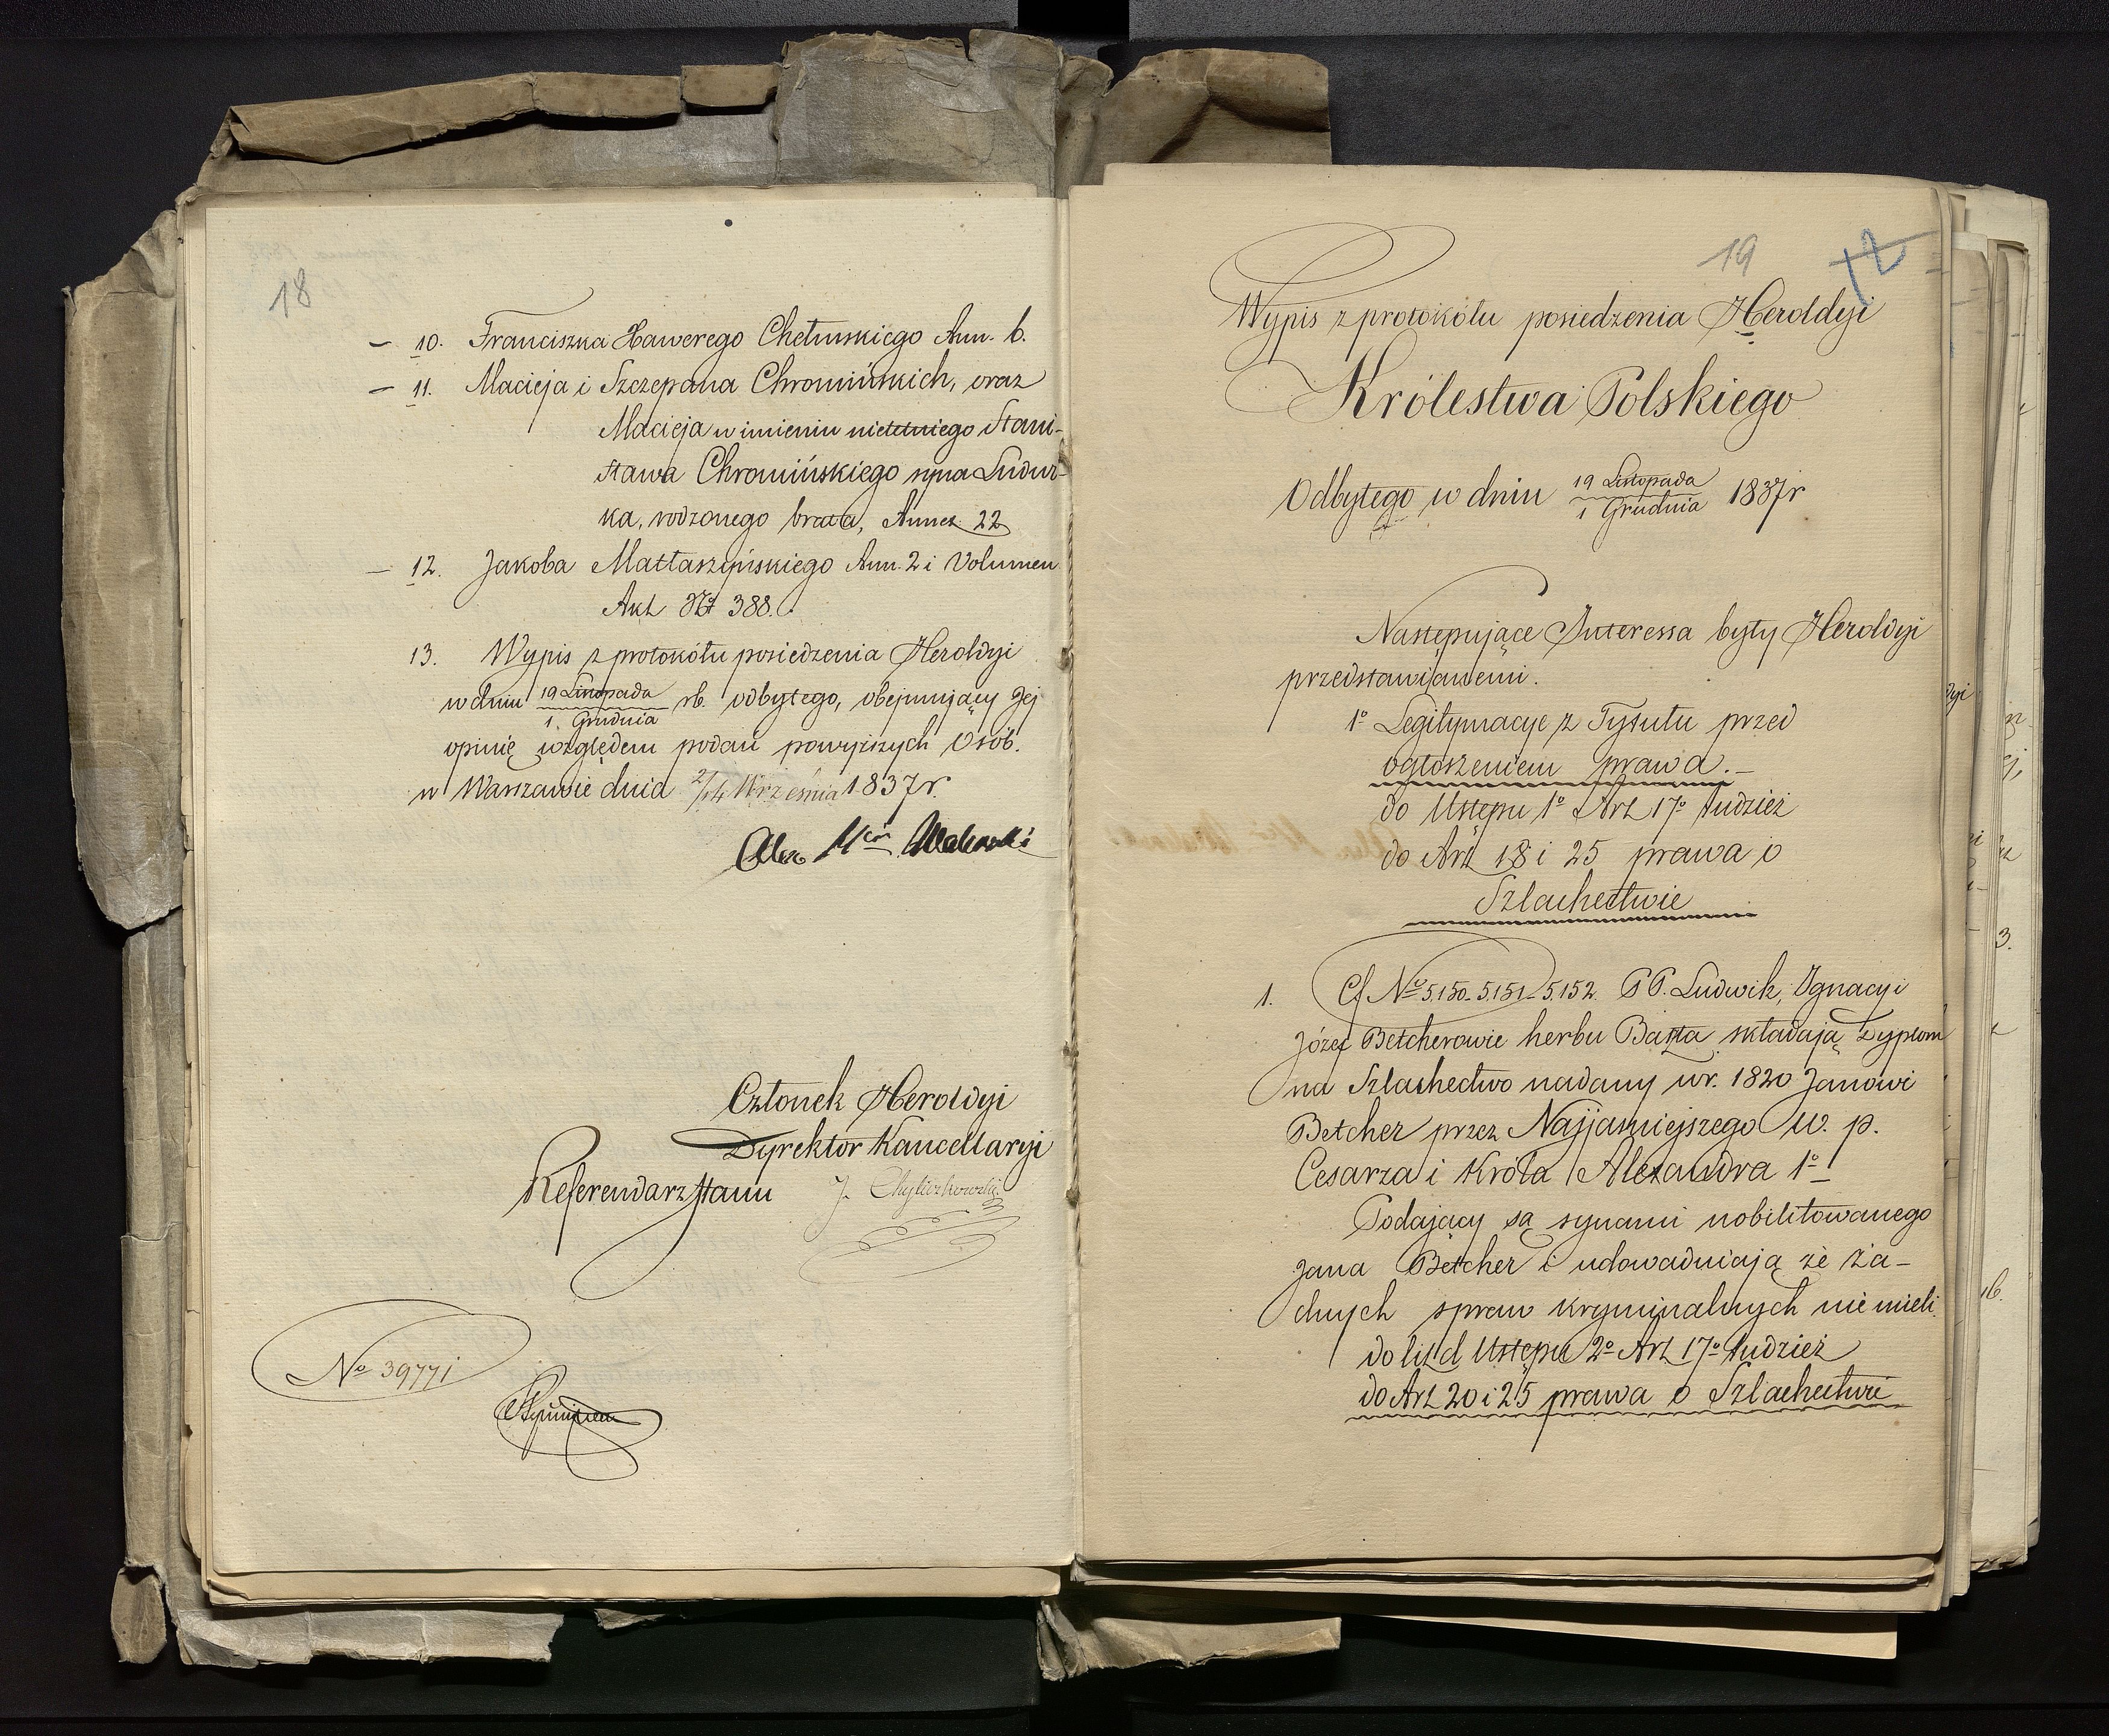 18
– 10. Franciszka Xawerego Chełmskiego Ann. 6.
– 11. Macieja i Szczepana Chromińskich, oraz
Macieja w imieniu nieletniego Stani-
sława Chromińskiego syna Ludwi-
ka, rodzonego brata, Annex 22
– 12. Jakoba Mattaszyńskiego Ann. 2 i Volumen
Akt No 388.
13. Wypis z protokółu posiedzenia Heroldyi
w dniu 19 Listopada / 1. Grudnia rb. odbytego, obejmujący Jej
opinię względem podań powyższych Osób.
w Warszawie dnia 2/14 Września 1837 r.
Członek Heroldyi
Dyrektor Kancellaryi
Referendarz Stanu J. Chyliczkowski
No 39771
19
12
Wypis z protokółu posiedzenia Heroldyi
Królestwa Polskiego
Odbytego w dniu 19 Listopada / 1 Grudnia 1837 r
Następujące Interessa były Heroldyi
przedstawianemi.
1o Legitymacye z Tytułu przed
ogłoszeniem prawa.–
do Ustępu 1o Art 17o tudzież
do Art 18 i 25 prawa o
Szlachectwie
1. Cf No 5.150–5.151–5.152. PP. Ludwik, Ignacy i
Józef Betcherowie herbu Baszta składają Dyplom
na Szlachectwo nadany w r. 1820 Janowi
Betcher przez Najjaśniejszego w. p.
Cesarza i Króla Alexandra 1o
Podający są synami nobilitowanego
Jana Betcher i udowadniają że ża-
dnych spraw kryminalnych nie mieli.
do lit d Ustępu 2o Art 17o tudzież
do Art 20 i 25 prawa o Szlachectwie